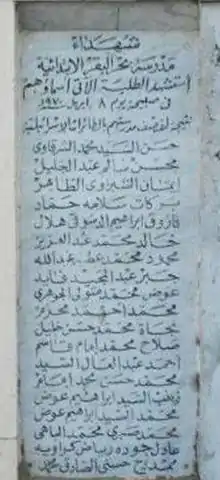 شهداء
مدرسة بحر البقر الابتدائية
استشهد الطلبة الآتى أسماؤهم
فى صبيحة يوم ٨ ابريل ١٩٧٠
نتيجة لقصف مدرستهم بالطائرات الاسرائيلية
حسن السيد محمد الشرقاوى
محسن سالم عبد الجليل
ايمان الشبراوى الطاهر
بركات سلامه حماد
فاروق ابراهيم الدسوقى هلال
خالد محمد عبد العزيز
محمود محمد عطيه عبدالله
جبر عبد المجيد فايد
عوض محمد متولى الجوهرى
محمد احمد محرم
نجاة محمد حسن خليل
صلاح محمد امام قاسم
احمد عبد العال السيد
محمد حسن محمد امام
زينب السيد ابراهيم عوض
محمد السيد ابراهيم عوض
محمد صبرى محمد الباهى
عادل جوده رياض كراويه
ممدوح حسنى الصادق محمد